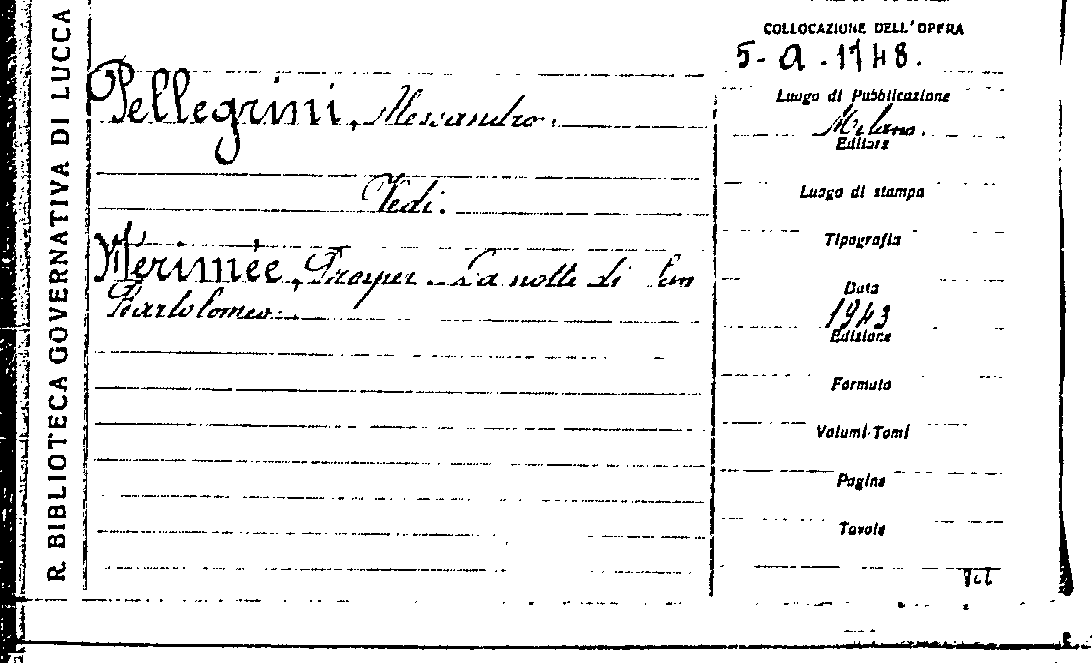 R. BIBLIOTECA GOVERNATIVA DI LUCCA
COLLOCAZIONE DELL'OPERA
5-a.1748.
Pellegrini, Alessandro.
Vedi.
Merimée, Prosper La notte di San
Bartolomeo.
Luogo di Pubblicazione
Milano.
Editore
Luogo di stampa
Tipografia
Data
1943
Edizione
Formato
Volumi-Tomi
Pagine
Tavole